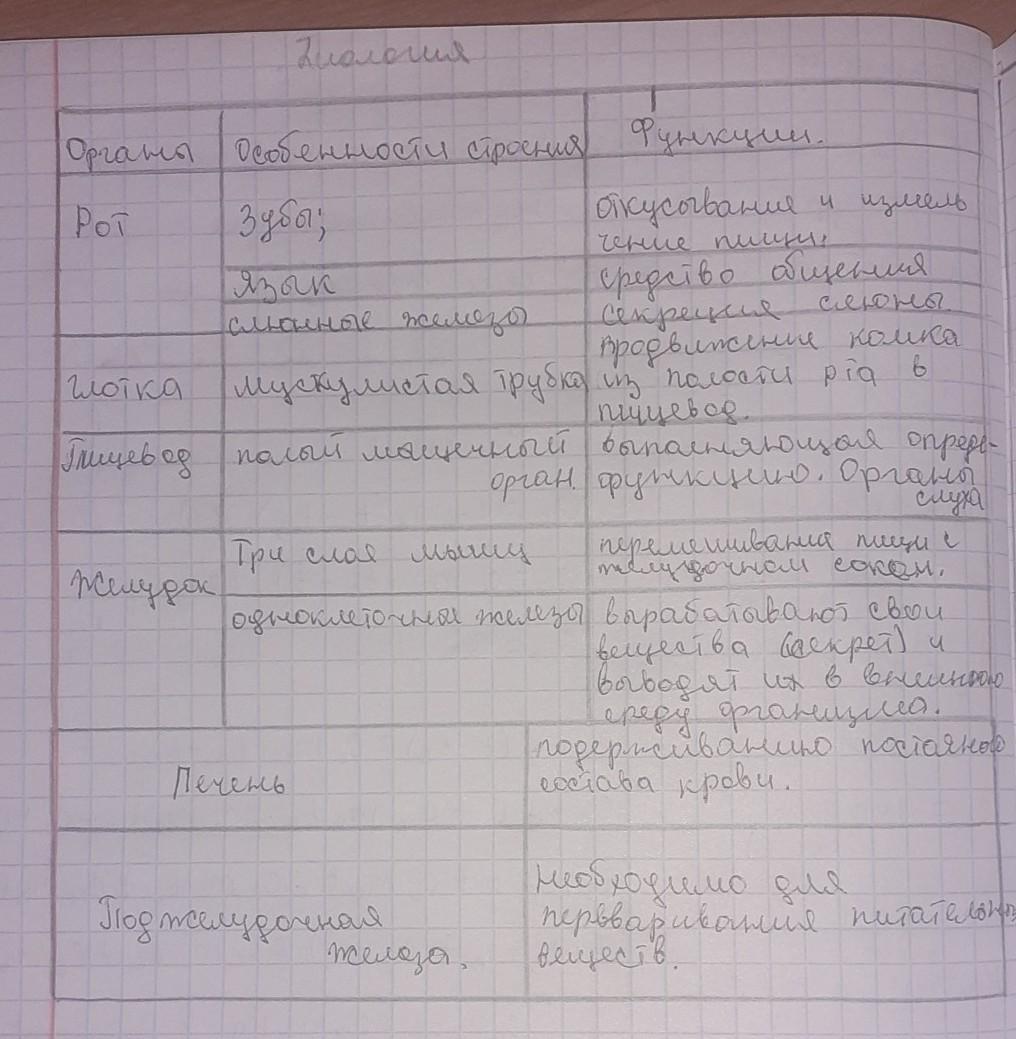 Биология
Органы Особенности строения Функции.
Рот Зубы; откусывание и измель
чение пищи.
язык средство общения
слюнные железы секреция слюны
продвижение комка
глотка мускулистая трубка из полости рта в
пищевод.
Пищевод полый мышечный выполняющая опреде-
орган. функцию. Органы
слуха
Три слоя мышц перемешивания пищи с
Желудок желудочном соком.
одноклеточные железы вырабатывают свои
вещества (секрет) и
выводят их в внешнюю
среду организма.
подерживанию постояного
Печень состава крови.
необходимо для
Поджелудочная перваривания питательных
железа. веществ.